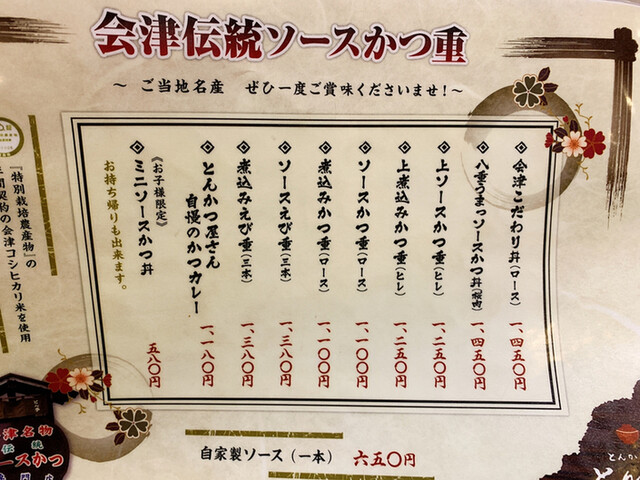 会津伝統ソースかつ重
～ ご当地名産 ぜひ一度ご賞味くださいませ！～
◈会津こだわり丼(ロース) 一、四五〇円
◈八重うまっソースかつ丼(桜肉) 一、四五〇円
◈上ソースかつ重(ヒレ) 一、二五〇円
◈上煮込みかつ重(ヒレ) 一、二五〇円
◈ソースかつ重(ロース) 一、一〇〇円
◈煮込みかつ重(ロース) 一、一〇〇円
◈ソースえび重(三本) 一、三八〇円
◈煮込みえび重(三本) 一、三八〇円
◈とんかつ屋さん
自慢のかつカレー 一、一八〇円
《お子様限定》
◈ミニソースかつ丼 五八〇円
お持ち帰りも出来ます。
自家製ソース（一本） 六五〇円
『特別栽培農産物』の
間契約の会津コシヒカリ米を使用
津名物
伝統
ースかつ
とんか